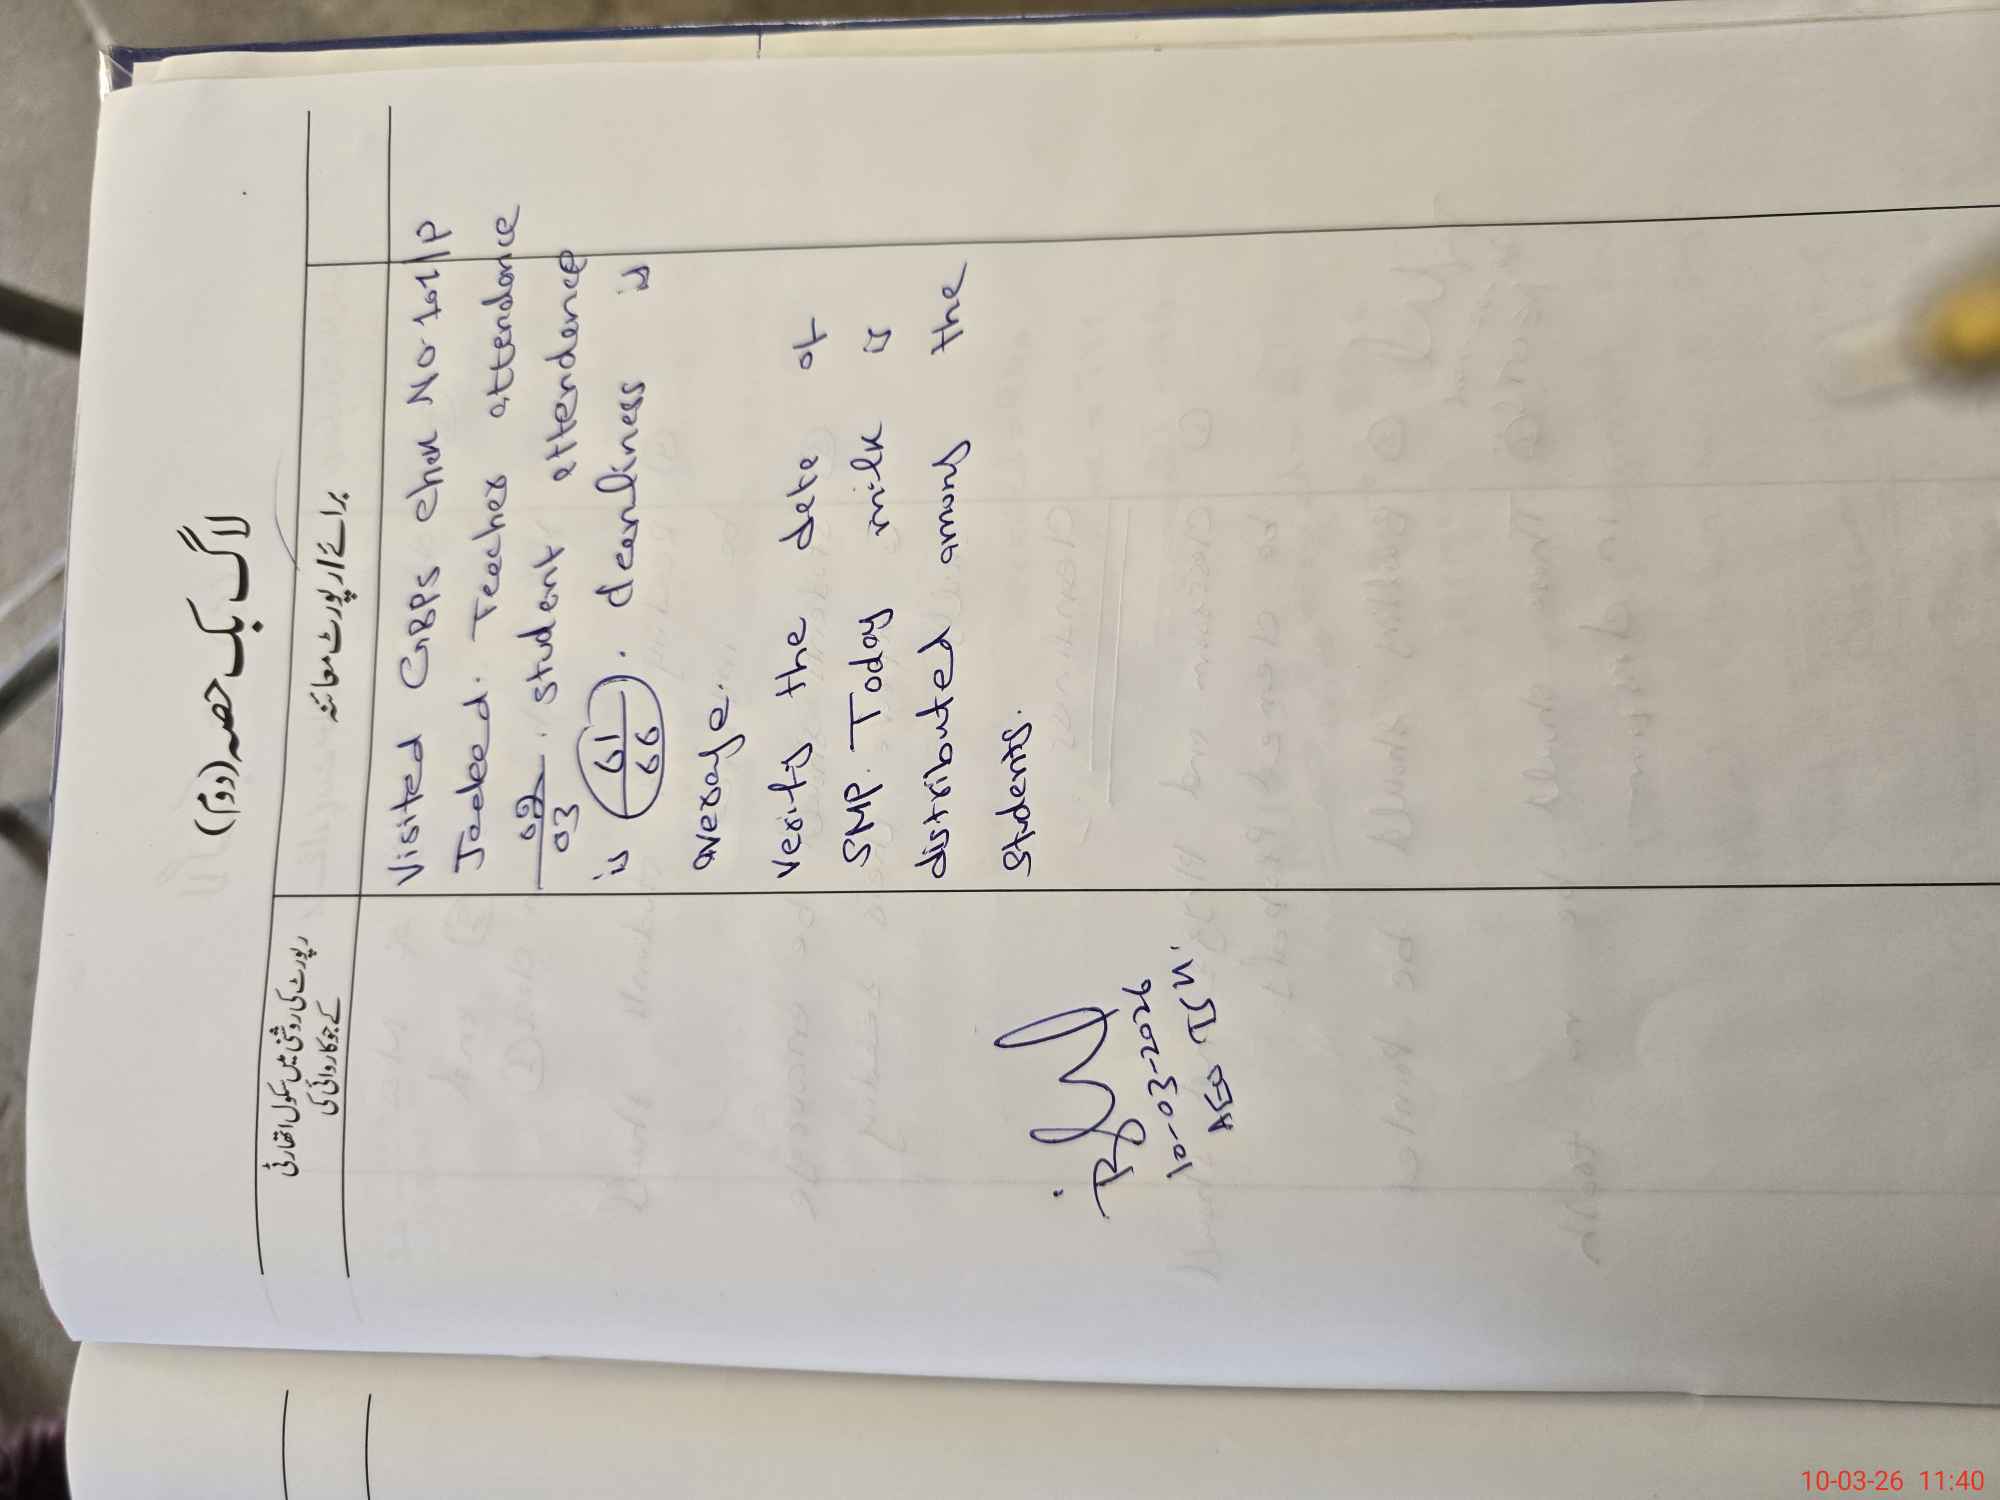 لاگ بک حصہ (دوم)
برائے ارپورٹ معائنہ
رپورٹ کی روشنی میں سکول اتھارٹی
کے جو کاروائی کی
Visited GBPS chak No 101/P
Jadeed. Teacher attendance
02/03. student attendence
is 61/66. cleanliness is
average.
verify the data of
SMP. Today milk is
distributed among the
students.
10-03-2026
AEO
10-03-26 11:40